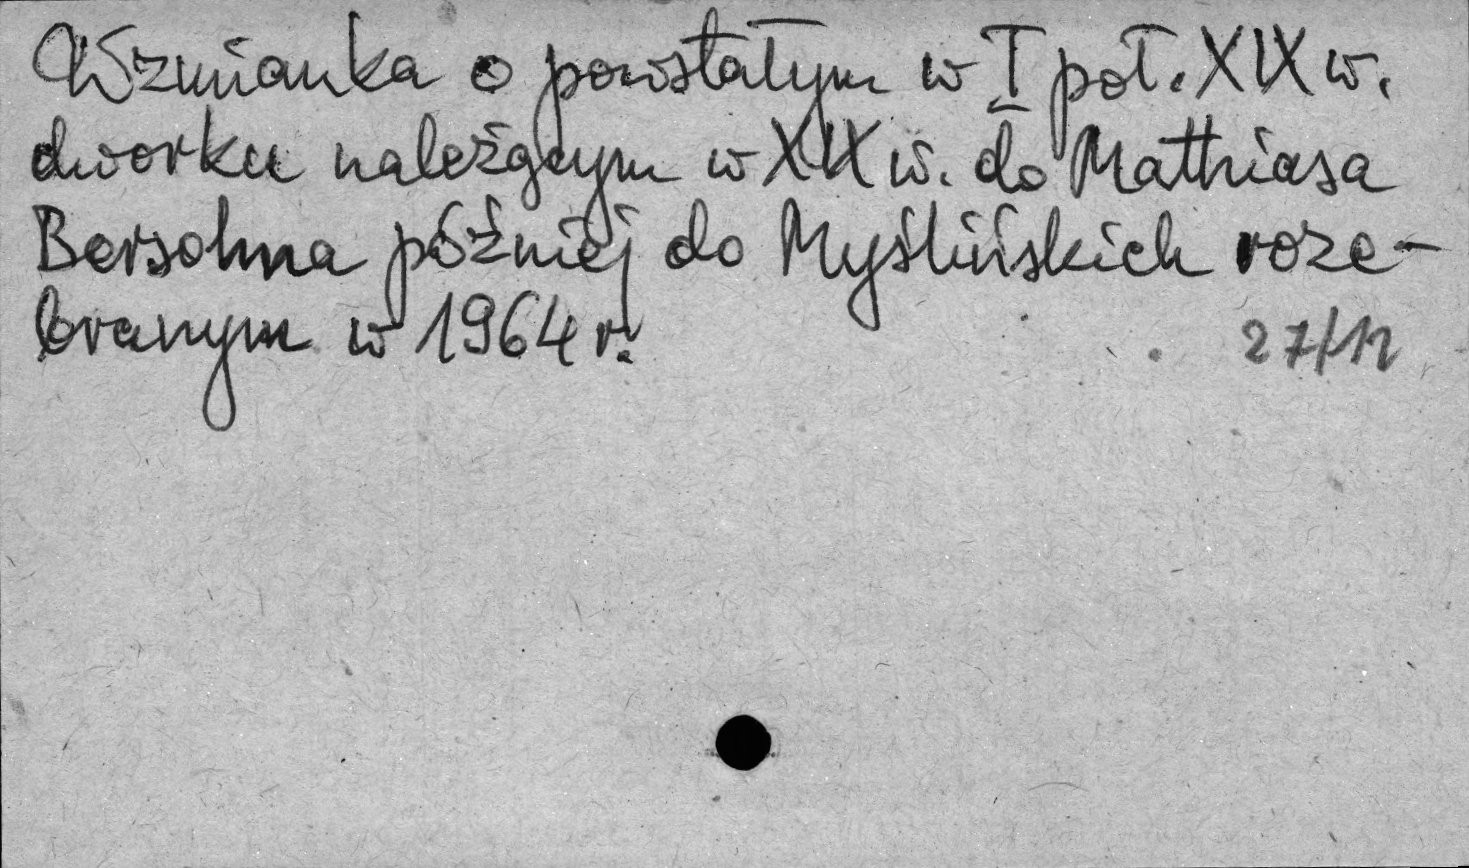 Wzmianka o powstałym w I poł. XIX w.
dworku należącym w XIX w. do Mathiasa
Bersohna później do Myślińskich roze-
branym w 1964 r.
27/12